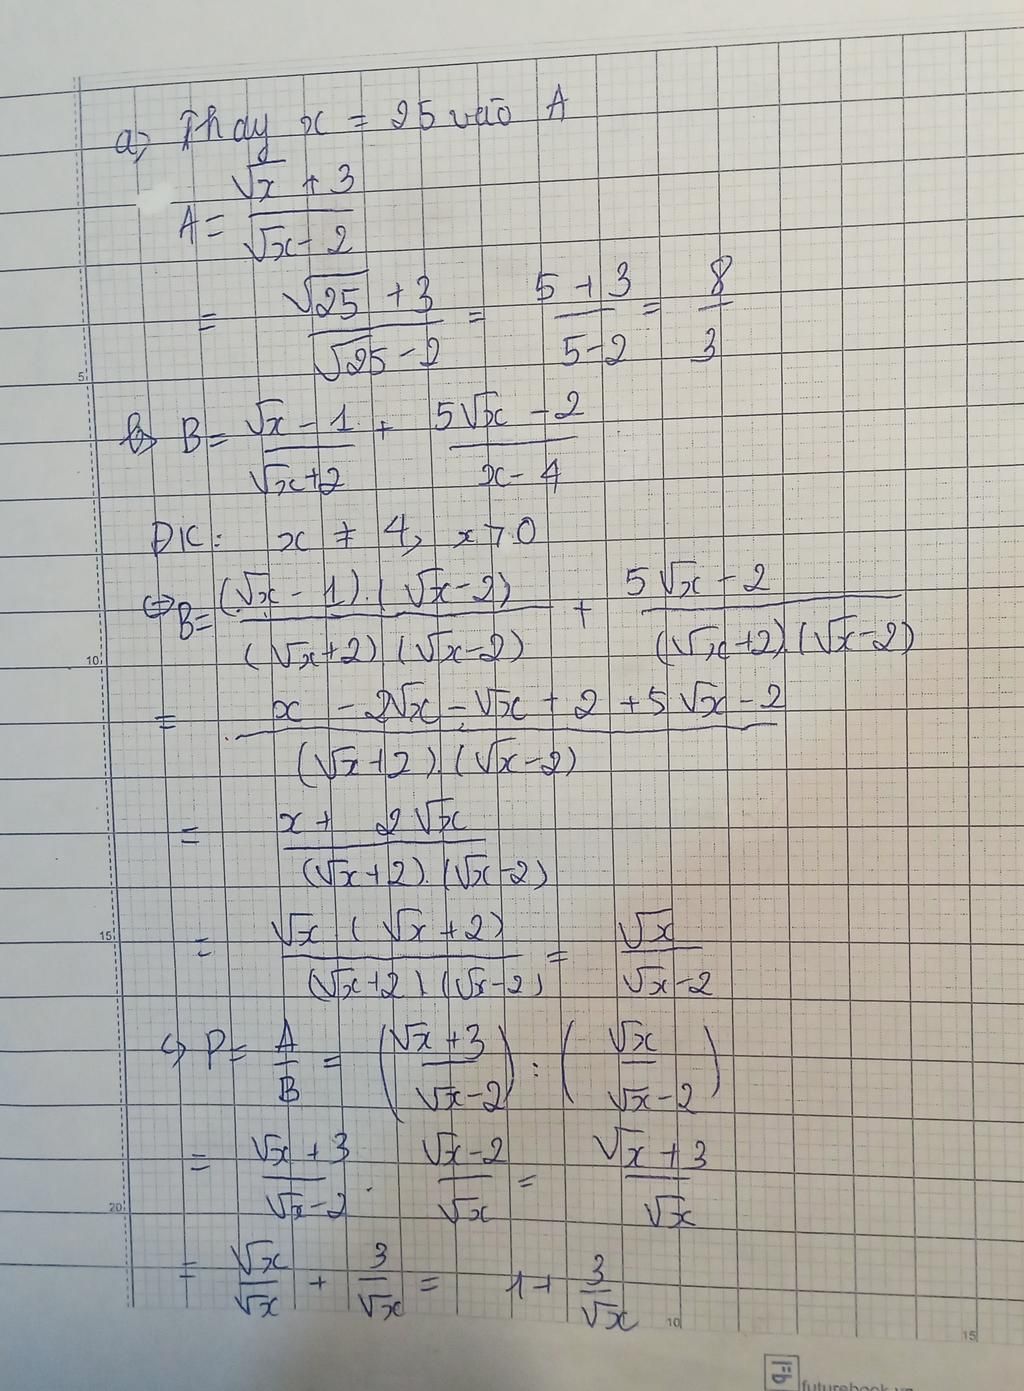 a, Thay x = 25 vào A
A = (√x + 3)/(√x - 2)
= (√25 + 3)/(√25 - 2) = (5 + 3)/(5 - 2) = 8/3
b, B = (√x - 1)/(√x + 2) + (5√x - 2)/(x - 4)
ĐK: x ≠ 4, x > 0
⇔ B = ((√x - 1).(√x - 2))/((√x + 2)(√x - 2)) + (5√x - 2)/((√x + 2).(√x - 2))
= (x - 2√x - √x + 2 + 5√x - 2)/((√x + 2).(√x - 2))
= (x + 2√x)/((√x + 2).(√x - 2))
= (√x (√x + 2))/((√x + 2)(√x - 2)) = √x/(√x - 2)
c, P = A/B = ((√x + 3)/(√x - 2)) : (√x/(√x - 2))
= (√x + 3)/(√x - 2) . (√x - 2)/√x = (√x + 3)/√x
= √x/√x + 3/√x = 1 + 3/√x
5
10
15
20
10
15